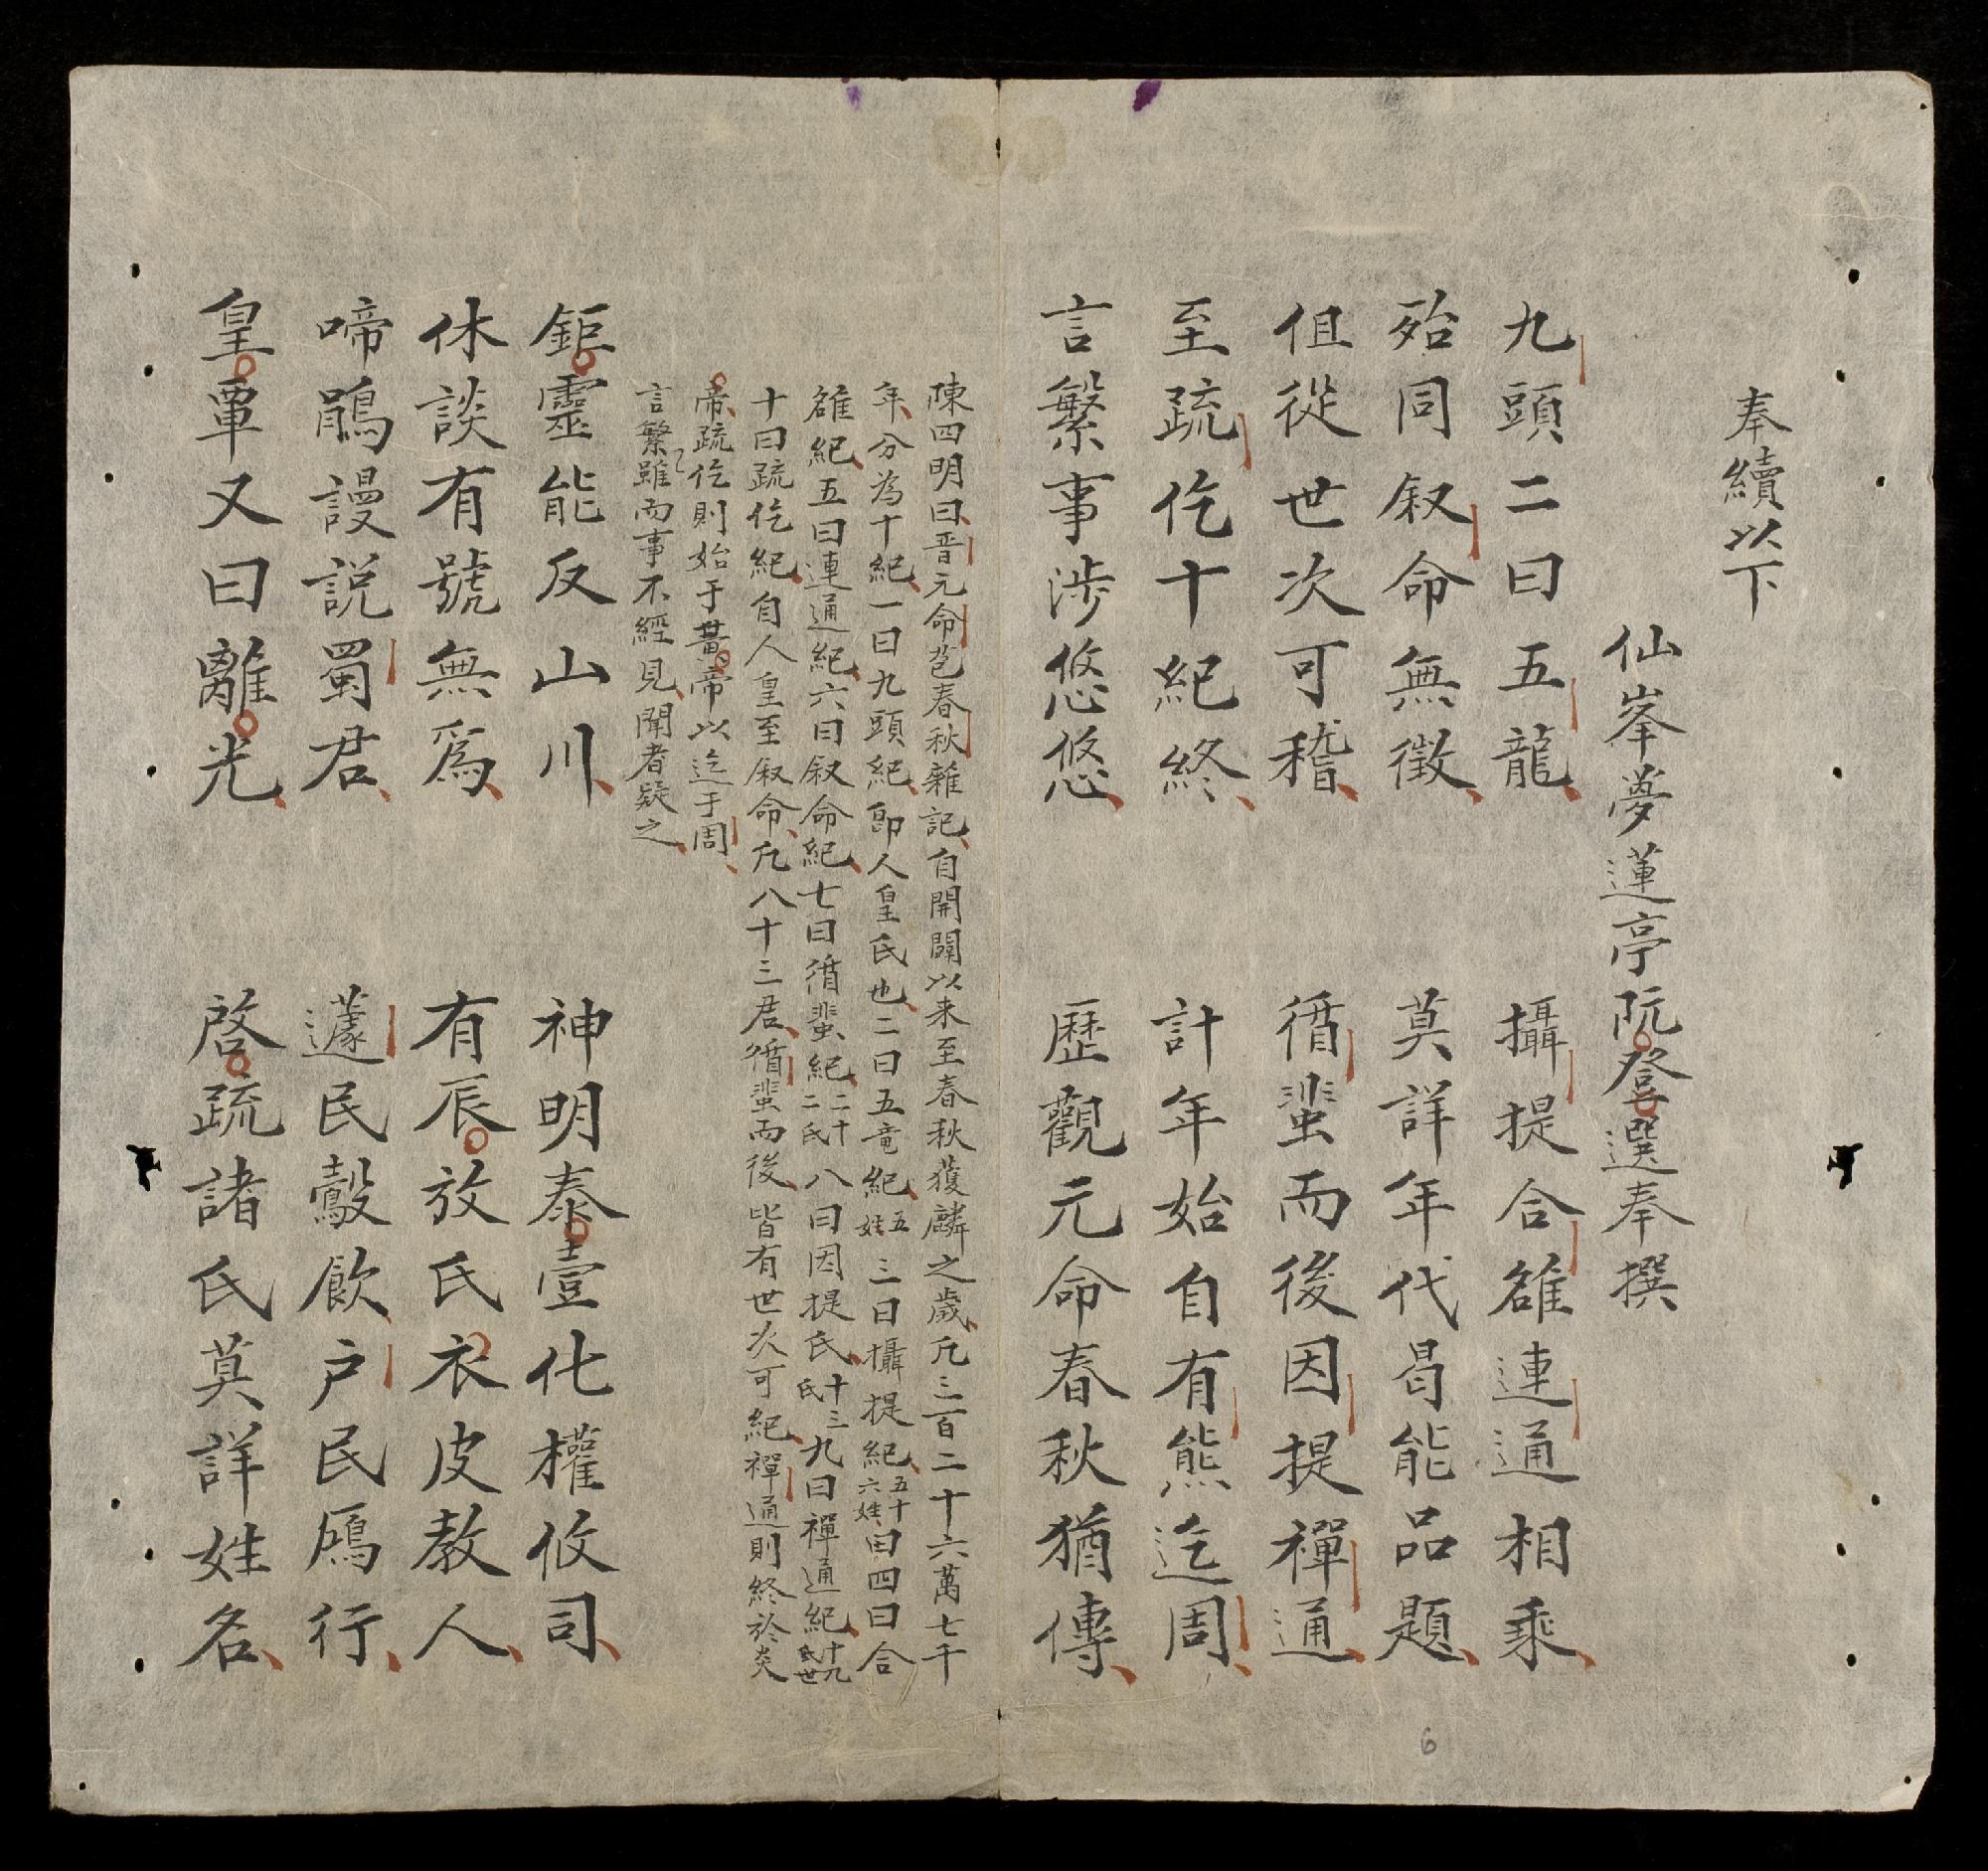 奉續以下
仙峯夢蓮亭阮登選奉撰
九頭二曰五龍 攝提合雒連通相乘
殆同叙命無徵 莫詳年代曷能品題
伹從世次可稽 循蜚而後因提禪通
至疏仡十紀終 計年始自有熊迄周
言繁事涉悠悠 歷觀元命春秋猶傳
陳四明曰晋元命苞春秋雜記自開闢以来至春秋獲麟之歲凢三百二十六萬七千
年分為十紀一曰九頭紀即人皇氏也二曰五竜紀五姓三曰攝提紀五十六姓四曰合
雒紀五曰連通紀六曰叙命紀七曰循蜚紀二十二氏八曰因提氏十三氏九曰禪通紀十九氏世
十曰疏仡紀自人皇至叙命凢八十三君循蜚而後皆有世次可紀禪通則終於炎
帝疏仡則始于黃帝以迄于周
言繁雖而事不經見聞者疑之
鉅靈能反山川 神明泰壹化權攸司
休談有號無爲 有辰放氏衣皮教人
啼鵑謾説蜀君 蘧民鷇飲户民鳫行
皇覃又曰離光 啓疏諸氏莫詳姓名
6